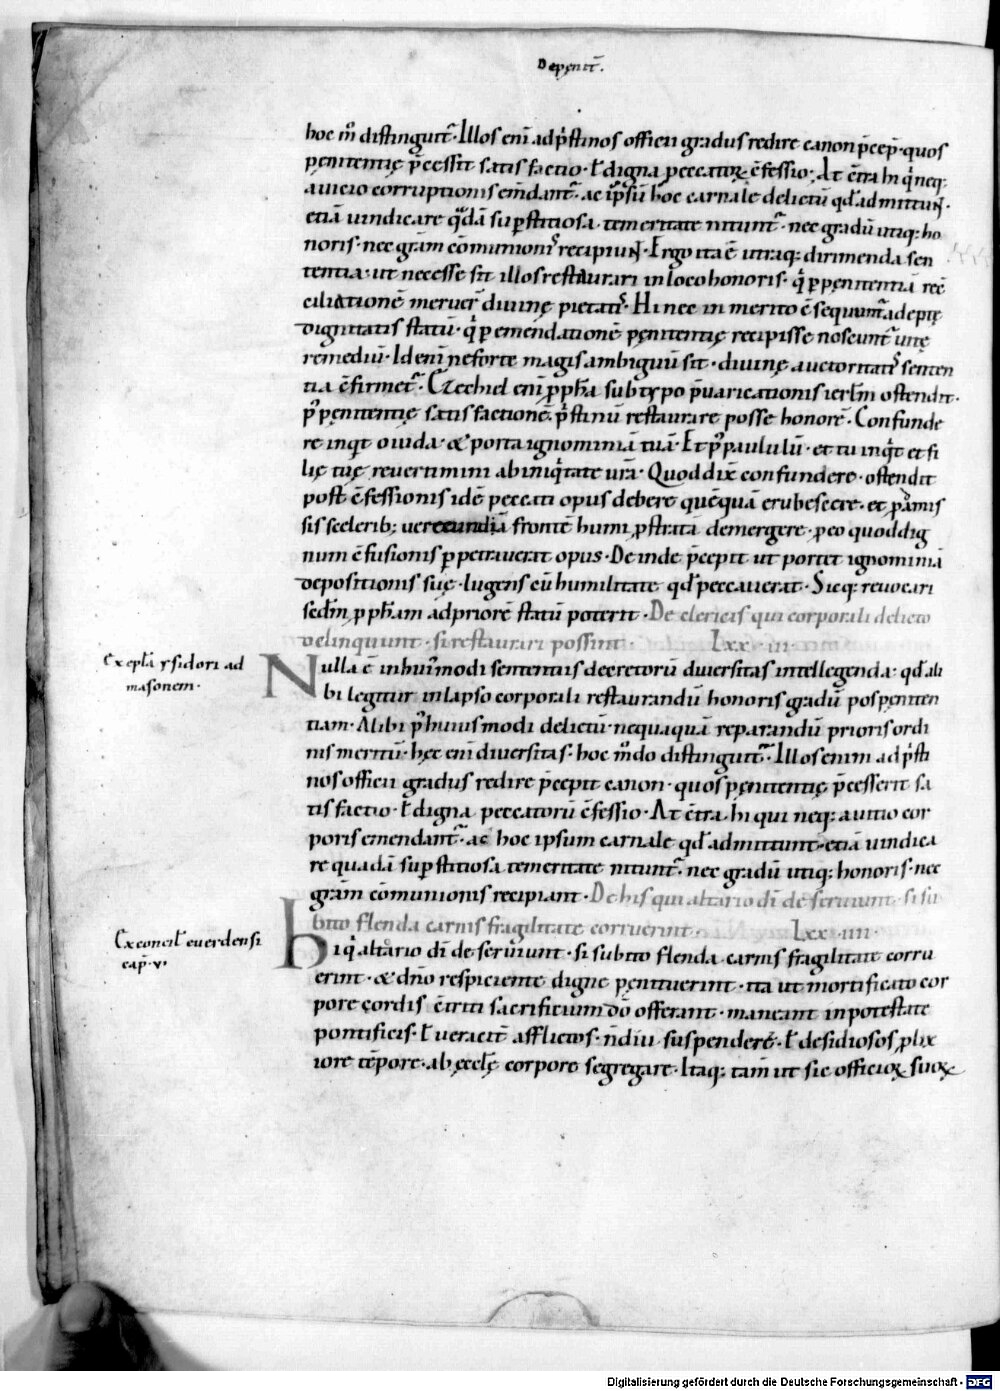 De penit̄.
hoc m̄ distinguit̄. Illos enī ad p̄stinos officii gradus redire canon p̄cep. quos
penitentię p̄cessit satisfactio. ł digna peccatoꝝ c̄fessio. At c̄tra hi q̄ neq;
a uicio corruptionis em̄dant̄. ac ip̄sū hoc carnale delictū qđ admittuṇ.
etiā uindicare q̄dā sup̄stitiosa temeritate nitunt̄. nec gradū utiq; ho
noris. nec grām cōmunionis recipiuṇ. Ergo ita ē utraq; dirimenda sen
tentia. ut necesse sit illos restaurari in loco honoris. q̄ p̄ penitentiā rec̄
ciliationē meruer̄ diuinę pietatis. Hi nec inmerito c̄sequunt̄ adeptę
dignitatis statū. q̄ p̄ emendationē penitentię recipisse noscunt̄ uitę
remediū. Id enī ne forte magis ambiguū sit. diuinę auctoritatis senten
tia c̄firmet̄. Ezechiel enī p̄pħa sub typo p̄uaricationis ierłm ostendit.
p̄ penitentię satisfactionē p̄stinū restaurare posse honorē. Confunde
re inqt o iuda. & porta ignominiā tuā. Et p̄ paululū. et tu inqt et fi
lię tuę reuertimini ab iniq̄tate ur̄a. Quod dix̄ confundere. ostendit
post c̄fessionis idē peccati opus debere quēquā erubescere. et p̄ amis
sis scelerib; uerecundiā frontē humi p̄stratā demergere. p̄ eo quod dig
num c̄fusionis p̄petrauerat opus. Deinde p̄cepit ut portet ignominiā
depositionis suę. lugens eū humilitate qđ peccauerat. Sicq; reuocari
scđm p̄pħam ad priorē statū poterit. De clericis qui corporali delicto
delinquunt. si restaurari possint. Lxx.iii.
Ex epłā ysidori ad
masonem.
Nulla ē in hui'modi sententiis decretorū diuersitas intellegenda. qđ ali
bi legitur in lapso corporali restaurandū honoris gradū pos peniten
tiam. Alibi p̄ huiusmodi delictū nequaquā reparandū prioris ordi
nis meritū. hęc enī diuersitas. hoc m̄do distinguit̄. Illos enim ad p̄sti
nos officii gradus redire p̄cepit canon. quos penitentię p̄cesserit sa
tisfactio. ł digna peccatorū c̄fessio. At c̄tra hi qui neq; a uitio cor
poris emendant̄. ac hoc ipsum carnale qđ admittunt. etiā uindica
re quadā sup̄stitiosa temeritate nitunt̄. nec gradū utiq; honoris. nec
grām cōmunionis recipiant. De his qui altario dī deseruiunt. si su
bito flenda carnis fragilitate corruerint. Lxx.iiii.
Ex concił euerdensi
cap. v.
Hi q̄ altario dī deseruiunt. si subito flenda carnis fragilitate corru
erint. & dn̄o respiciente digne penituerint. ita ut mortificato cor
pore cordis c̄triti sacrificium dō offerant. maneant in potestate
pontificis. ł ueracit̄ afflictos. n̄ diu suspendere. ł desidiosos p̄lix
iore tēpore. ab ęccłę corpore segregare. Itaq; tam̄ ut sic officioꝝ suoꝝ
Digitalisierung gefördert durch die Deutsche Forschungsgemeinschaft - DFG